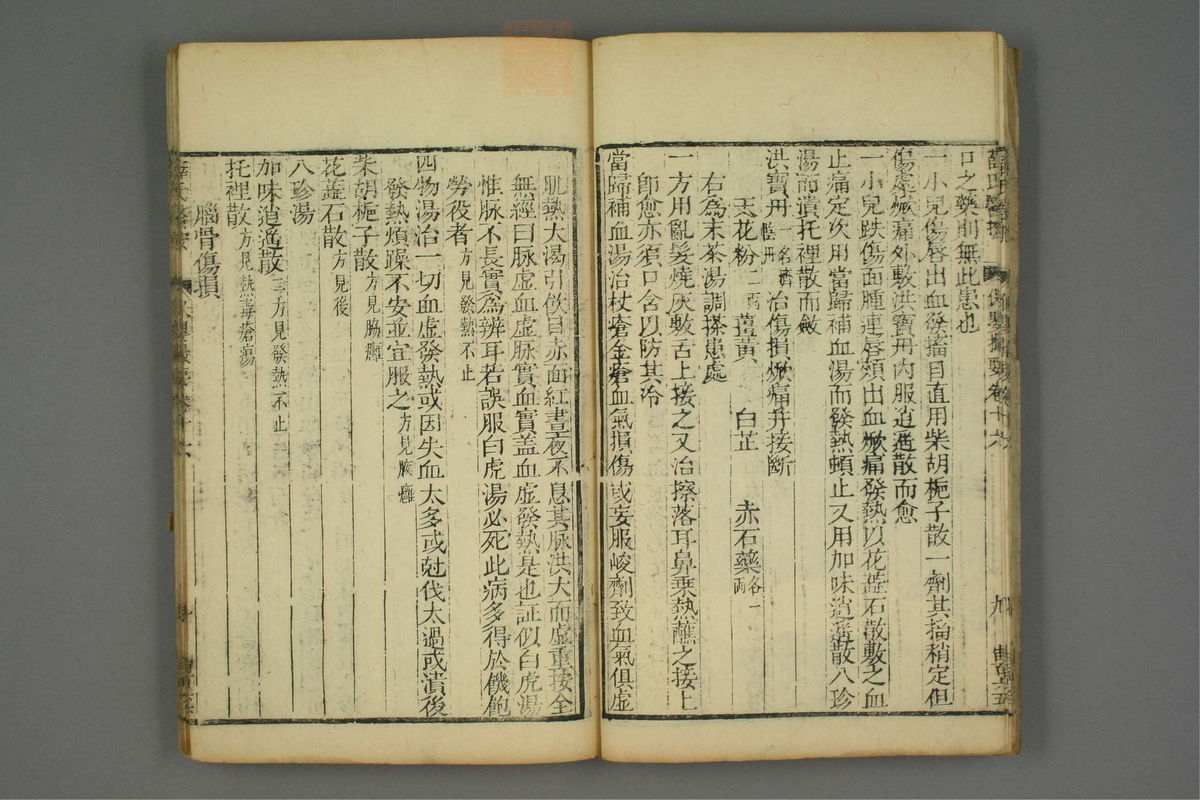 口之藥則無此患也
一小兒傷唇出血發搐目直用柴胡梔子散一劑其搐稍定但
傷處焮痛外敷洪寶丹內服逍遙散而愈
一小兒跌傷面腫連唇頰出血焮痛發熱以花蕋石散敷之血
止痛定次用當歸補血湯而發熱頓止又用加味逍遙散八珍
湯而潰托裡散而斂
洪寶丹一名濟陰丹治傷損焮痛并接斷
天花粉二兩 薑黃 白芷 赤石藥各一兩
右為末茶湯調搽患處
一方用亂髮燒灰敷舌上接之又治擦落耳鼻乗熱蘸之接上
卽愈亦須口含以防其冷
當歸補血湯治杖瘡金瘡血氣損傷或妄服峻劑致血氣俱虛
肌熱大渴引飲目赤面紅晝夜不息其脉洪大而虛重按全
無經曰脉虛血虛脉實血實蓋血虛發熱是也証似白虎湯
惟脉不長實爲辨耳若誤服白虎湯必死此病多得於饑飽
勞役者方見發熱不止
四物湯治一切血虛發熱或因失血太多或尅伐太過或潰後
發熱煩躁不安並宜服之方見腋癰
柴胡梔子散方見腦癰
花蕋石散方見後
八珍湯
加味逍遙散二方見發熱不止
托裡散方見熱毒瘡瘍
腦骨傷損